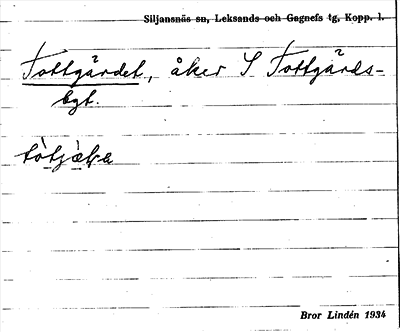 Siljansnäs sn, Leksands och Gagnefs tg, Kopp. l.
Tottgärdet, åker S Tottgärds-
bgt.
Bror Lindén 1934